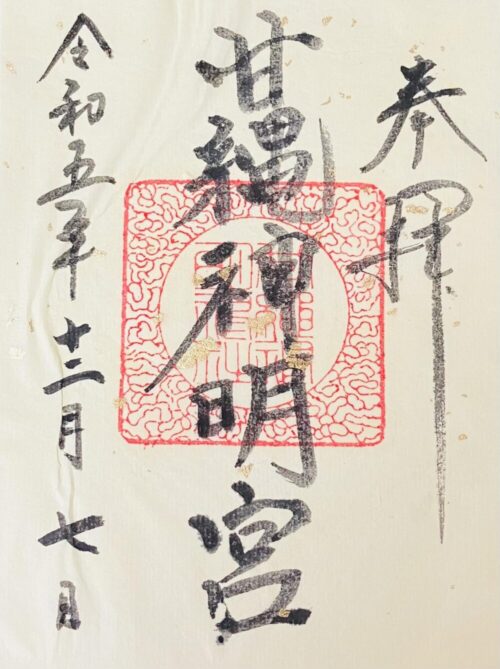 奉拝
甘縄神明宮
令和五年十二月七日